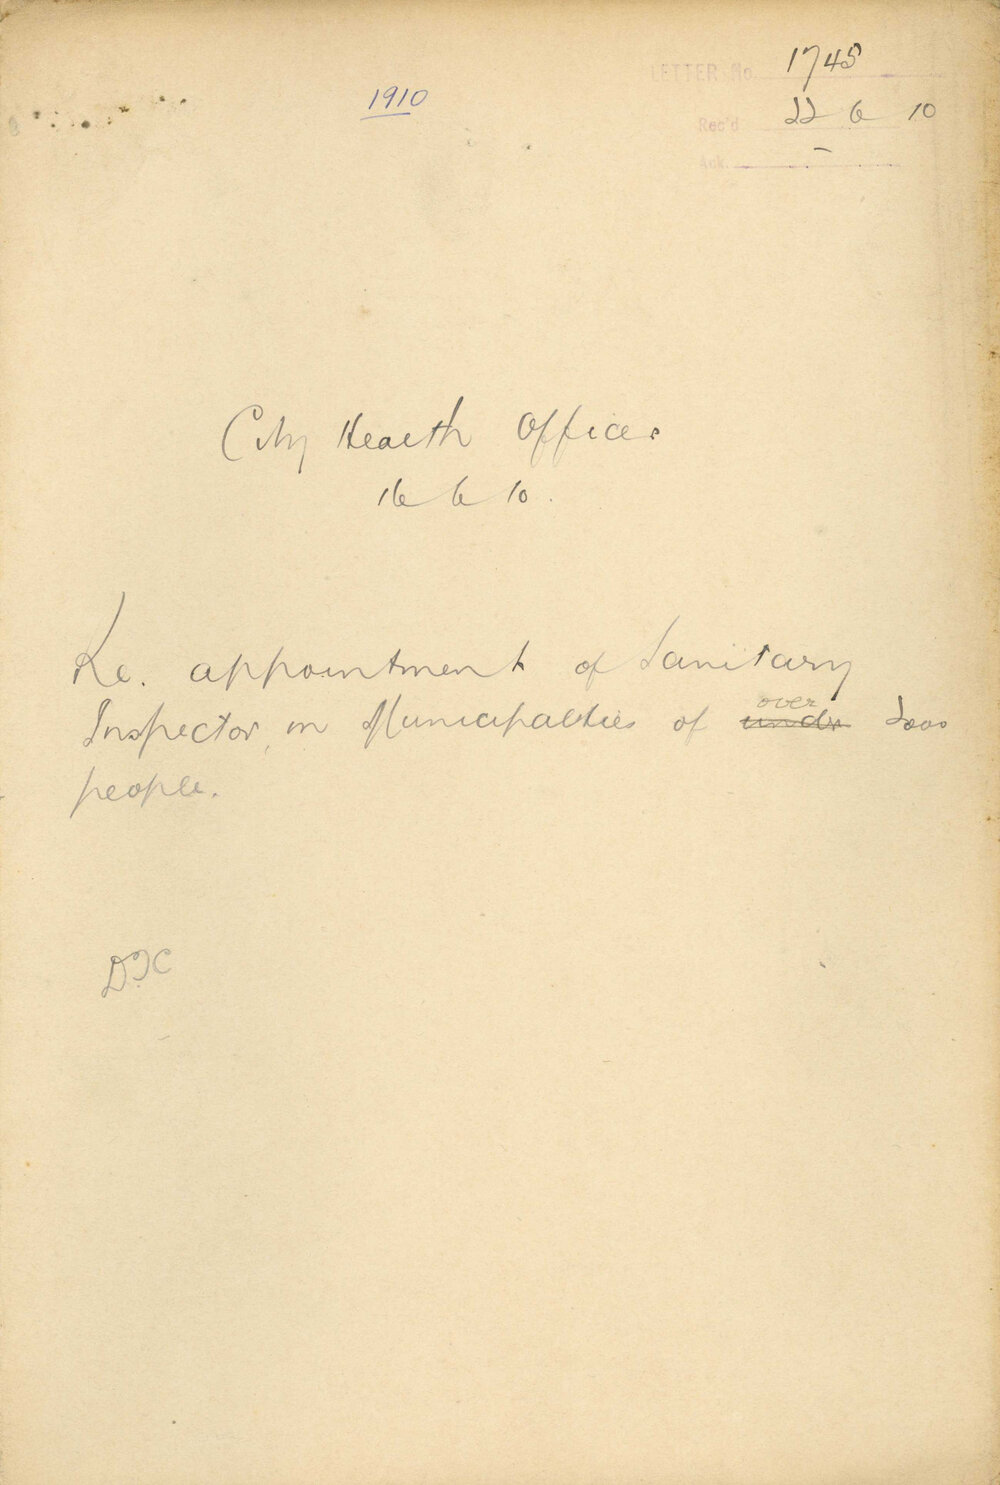 LETTER No. 1745
1910
Rec'd 22 6 10
Ack. –
City Health Officer
16 6 10.
Re. appointment of Sanitary
Inspector, in Municipalties of ~~undr~~ over
people.